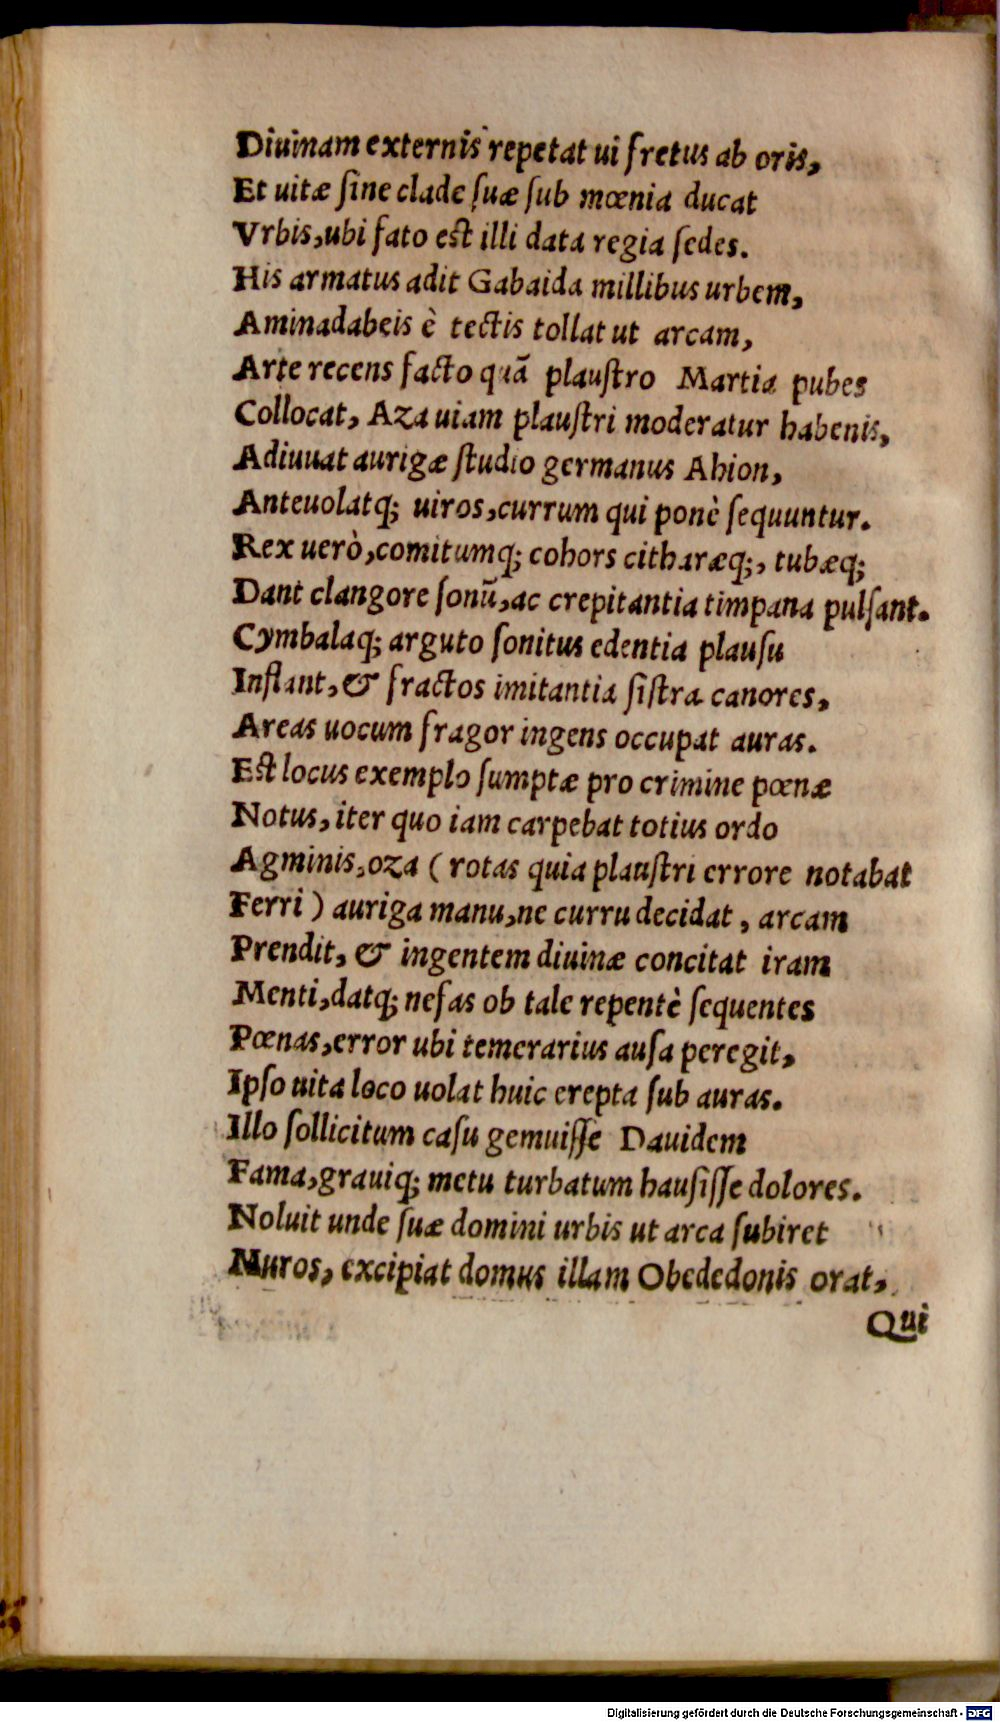 Diuinam externis repetat ui fretus ab oris,
Et uitæ ſine clade ſuæ ſub mœnia ducat
Vrbis, ubi fato est illi data regia ſedes.
His armatus adit Gabaida millibus urbem,
Aminadabeis è tectis tollat ut arcam,
Arte recens facto quā plauſtro Martia pubes
Collocat, Aza uiam plauſtri moderatur habenis,
Adiuuat aurigæ ſtudio germanus Ahion,
Anteuolatq; uiros, currum qui ponè ſequuntur.
Rex uerò, comitumq; cohors citharæq;, tubæq;
Dant clangore ſonū, ac crepitantia timpana pulſant.
Cymbalaq; arguto ſonitus edentia plauſu
Inflant, & fractos imitantia ſiſtra canores,
Areas uocum fragor ingens occupat auras.
Est locus exemplo ſumptæ pro crimine pœnæ
Notus, iter quo iam carpebat totius ordo
Agminis, oza ( rotas quia plauſtri errore notabat
Ferri ) auriga manu, ne curru decidat, arcam
Prendit, & ingentem diuinæ concitat iram
Menti, datq; nefas ob tale repentè ſequentes
Pœnas, error ubi temerarius auſa peregit,
Ipſo uita loco uolat huic erepta ſub auras.
Illo ſollicitum caſu gemuiſſe Dauidem
Fama, grauiq; metu turbatum hauſiſſe dolores.
Noluit unde ſuæ domini urbis ut arca ſubiret
Muros, excipiat domus illam Obededonis orat,
Qui
Digitalisierung gefördert durch die Deutsche Forschungsgemeinschaft - DFG